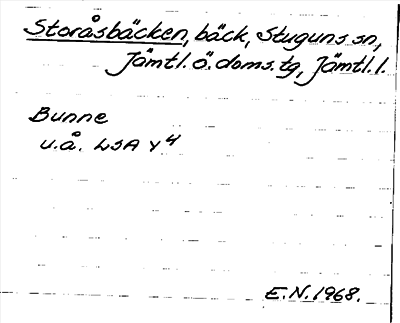 Storåsbäcken, bäck, Stuguns sn,
Jämtl. ö. doms. tg, Jämtl. l.
Bunne
u.å. LSA Y4
E.N. 1968.